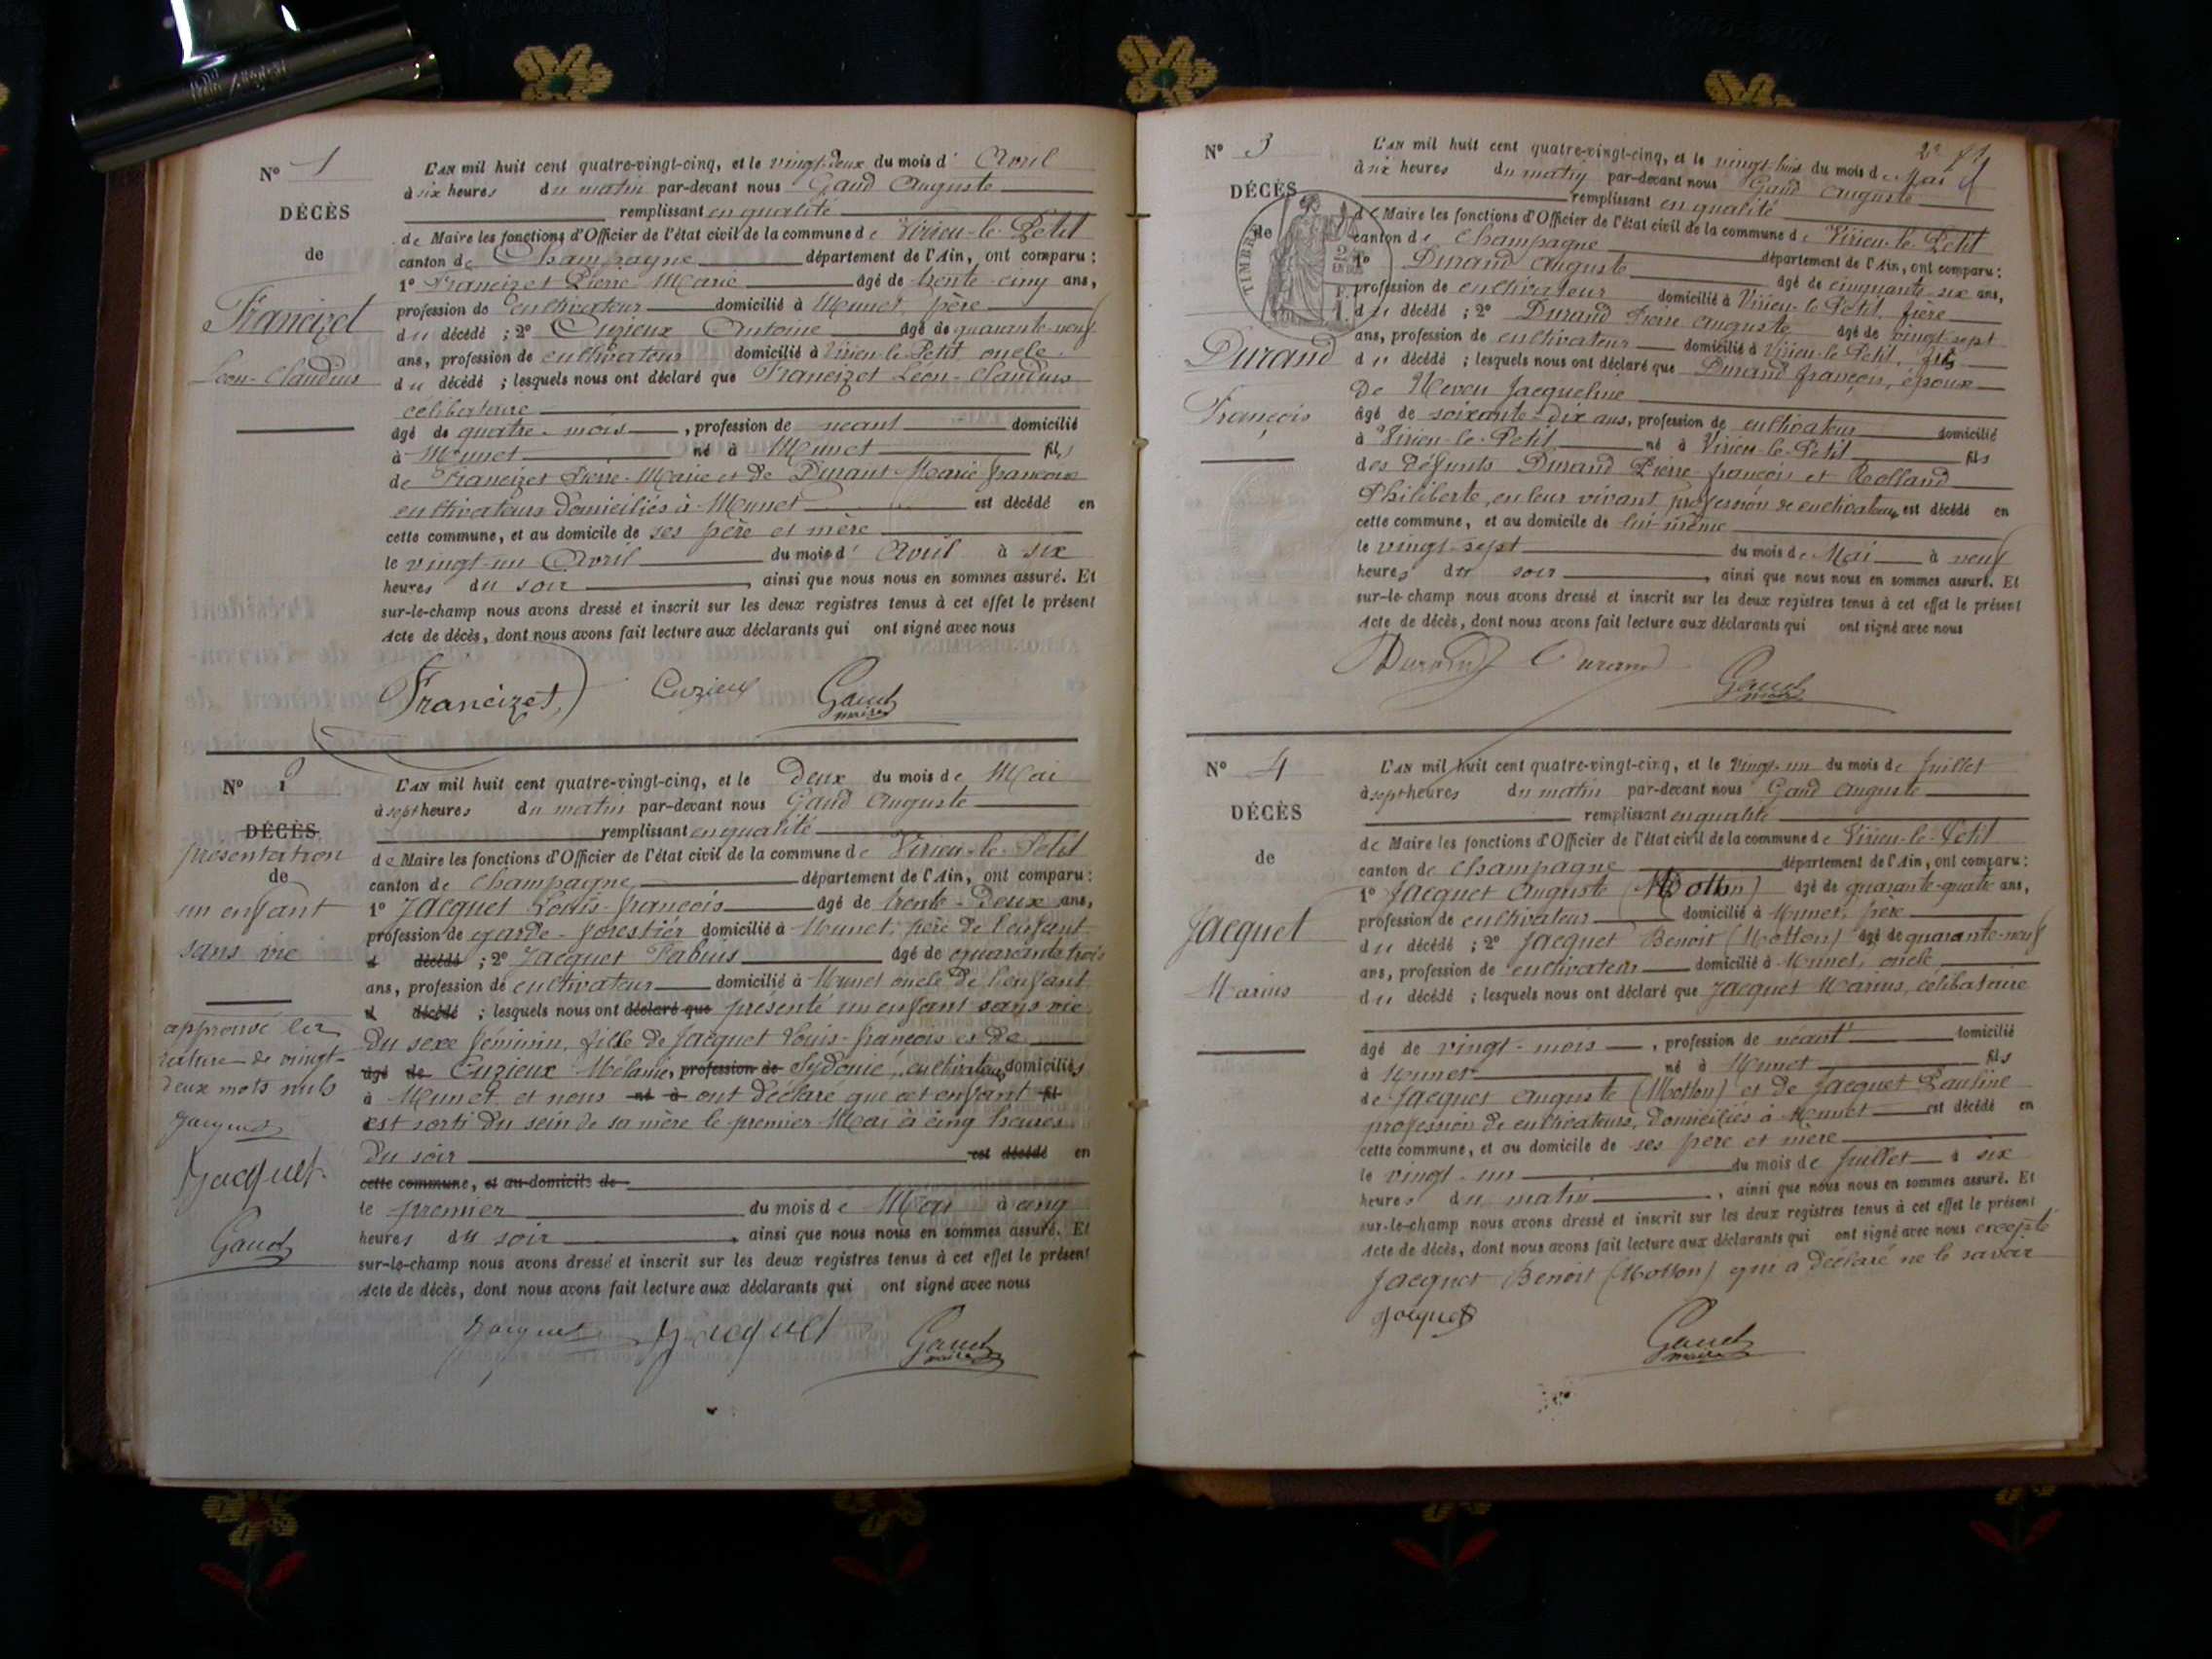 N° 1
DÉCÈS
de
Francizet
Léon-Claudius
L'AN mil huit cent quatre-vingt-cinq, et le vingt-deux du mois d' Avril
à six heures du matin par-devant nous Gaud Auguste
remplissant en qualité
de Maire les fonctions d'Officier de l'état civil de la commune de Virieu-le-Petit
canton de Champagne département de l'Ain, ont comparu :
1° Francizet Pierre Marie âgé de trente-cinq ans,
profession de cultivateur domicilié à Munet, père
du décédé ; 2° Cuzieux Antoine âgé de quarante-neuf
ans, profession de cultivateur domicilié à Virieu-le-Petit oncle
du décédé ; lesquels nous ont déclaré que Francizet Léon-Claudius
célibataire
âgé de quatre-mois , profession de néant domicilié
à Munet né à Munet fils
de Francizet Pierre-Marie et de Durant Marie françoise
cultivateurs domiciliés à Munet est décédé en
cette commune, et au domicile de ses père et mère
le vingt-un Avril du mois d' Avril à six
heures du soir , ainsi que nous nous en sommes assuré. Et
sur-le-champ nous avons dressé et inscrit sur les deux registres tenus à cet effet le présent
Acte de décès, dont nous avons fait lecture aux déclarants qui ont signé avec nous
Francizet Cuzieux Gaud
maire
N°
DÉCÈS
présentation
de
un enfant
sans vie
approuvé la
rature de vingt-
deux mots nuls
Jacquet
Jacquet
Gaud
L'AN mil huit cent quatre-vingt-cinq, et le Deux du mois de Mai
à sept heures du matin par-devant nous Gaud Auguste
remplissant en qualité
de Maire les fonctions d'Officier de l'état civil de la commune de Virieu-le-Petit
canton de Champagne département de l'Ain, ont comparu :
1° Jacquet Louis-françois âgé de trente-Deux ans,
profession de garde-forestier domicilié à Munet, père de l'enfant
d décédé ; 2° Jacquet Fabius âgé de quarante trois
ans, profession de cultivateur domicilié à Munet oncle de l'enfant
d décédé ; lesquels nous ont déclaré que présenté un enfant sans vie
du sexe féminin, fille de Jacquet Louis-françois et de
âgé de Cuzieux Mélanie, profession de Sydonie, cultivateurs domiciliés
à Munet et nous né à ont déclaré que cet enfant fil
est sorti du sein de sa mère le premier Mai à cinq heures
du soir est décédé en
cette commune, et au domicile de
le premier du mois de Mai à cinq
heures du soir , ainsi que nous nous en sommes assuré. Et
sur-le-champ nous avons dressé et inscrit sur les deux registres tenus à cet effet le présent
Acte de décès, dont nous avons fait lecture aux déclarants qui ont signé avec nous
Jacquet Jacquet Gaud
maire
N° 3
DÉCÈS
de
TIMBRE
Durand
François
L'AN mil huit cent quatre-vingt-cinq, et le vingt-huit du mois de Mai
à six heures du matin par-devant nous Gaud Auguste
remplissant en qualité
de Maire les fonctions d'Officier de l'état civil de la commune de Virieu-le-Petit
canton de Champagne département de l'Ain, ont comparu :
1° Durand Auguste âgé de cinquante-six ans,
profession de cultivateur domicilié à Virieu-le-Petit, frère
du décédé ; 2° Durand Pierre Auguste âgé de vingt-sept
ans, profession de cultivateur domicilié à Virieu-le-Petit, fils
du décédé ; lesquels nous ont déclaré que Durand françois, époux
De Neveu Jacqueline
âgé de soixante-dix ans, profession de cultivateur domicilié
à Virieu-le-Petit né à Virieu-le-Petit fils
des défunts Durand Pierre-françois et Rolland
Philiberte, en leur vivant profession de cultivateurs est décédé en
cette commune, et au domicile de lui-même
le vingt-sept du mois de Mai à neuf
heures du soir , ainsi que nous nous en sommes assuré. Et
sur-le-champ nous avons dressé et inscrit sur les deux registres tenus à cet effet le présent
Acte de décès, dont nous avons fait lecture aux déclarants qui ont signé avec nous
Durand Durand Gaud
maire
N° 4
DÉCÈS
de
Jacquet
Marius
L'AN mil huit cent quatre-vingt-cinq, et le vingt-un du mois de Juillet
à sept heures du matin par-devant nous Gaud Auguste
remplissant en qualité
de Maire les fonctions d'Officier de l'état civil de la commune de Virieu-le-Petit
canton de Champagne département de l'Ain, ont comparu :
1° Jacquet Auguste (Motton) âgé de quarante-quatre ans,
profession de cultivateur domicilié à Munet, père
du décédé ; 2° Jacquet Benoit (Motton) âgé de quarante-neuf
ans, profession de cultivateur domicilié à Munet, oncle
du décédé ; lesquels nous ont déclaré que Jacquet Marius, célibataire
âgé de vingt-mois , profession de néant domicilié
à Munet né à Munet fils
de Jacquet Auguste (Motton) et de Jacquet Pauline
profession de cultivateurs, domiciliés à Munet est décédé en
cette commune, et au domicile de ses père et mère
le vingt-un du mois de Juillet à six
heures du matin , ainsi que nous nous en sommes assuré. Et
sur-le-champ nous avons dressé et inscrit sur les deux registres tenus à cet effet le présent
Acte de décès, dont nous avons fait lecture aux déclarants qui ont signé avec nous excepté
Jacquet Benoit (Motton) qui a déclaré ne le savoir
Jacquet Gaud
maire